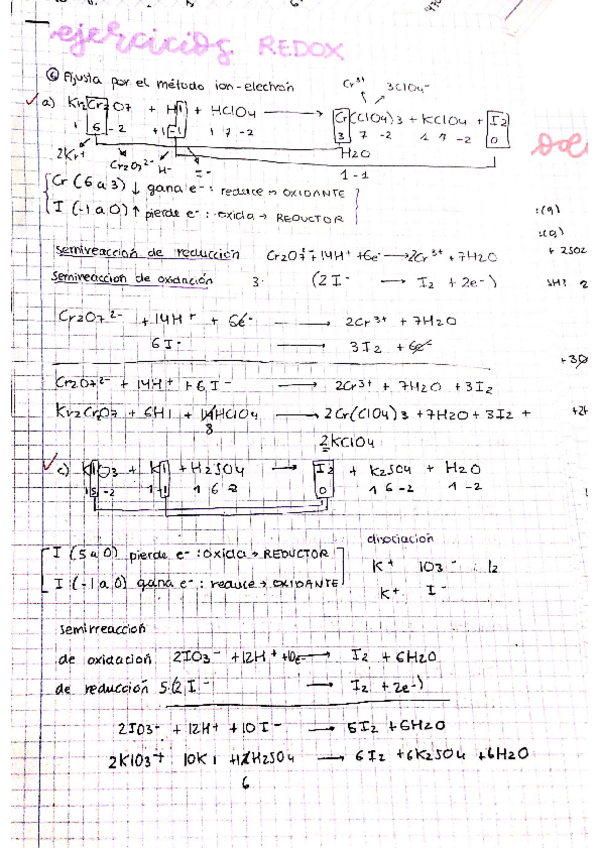 ejercicios REDOX
⑥ Ajusta por el método ion-electrón
Cr³⁺ 3ClO4⁻
a) Kr2Cr2O7 + HI + HClO4 ⟶ Cr(ClO4)3 + KClO4 + I2
1 6 -2 +1 -1 1 7 -2 3 7 -2 1 7 -2 0
H2O
1 -1
2Kr⁺ Cr2O7²⁻ H⁻ I⁻
Cr (6 a 3) ↓ gana e⁻: reduce → OXIDANTE
I (-1 a 0) ↑ pierde e⁻: oxida → REDUCTOR
semireacción de reducción Cr2O7²⁻ + 14H⁺ + 6e⁻ ⟶ 2Cr³⁺ + 7H2O
semireaccion de oxidación 3· (2I⁻ ⟶ I2 + 2e⁻)
Cr2O7²⁻ + 14H⁺ + 6e⁻ ⟶ 2Cr³⁺ + 7H2O
6I⁻ ⟶ 3I2 + 6e⁻
Cr2O7²⁻ + 14H⁺ + 6I⁻ ⟶ 2Cr³⁺ + 7H2O + 3I2
Kr2Cr2O7 + 6HI + 14HClO4 ⟶ 2Cr(ClO4)3 + 7H2O + 3I2 +
8
2KClO4
c) KIO3 + KI + H2SO4 ⟶ I2 + K2SO4 + H2O
1 5 -2 1 -1 1 6 2 0 1 6 -2 1 -2
disociacion
I (5 a 0) pierde e⁻: oxida → REDUCTOR
K⁺ IO3⁻ I2
I (-1 a 0) gana e⁻: reduce → OXIDANTE
K⁺ I⁻
semirreaccion
de oxidacion 2IO3⁻ + 12H⁺ + 10e⁻ ⟶ I2 + 6H2O
de reducción 5·(2I⁻ ⟶ I2 + 2e⁻)
2IO3⁻ + 12H⁺ + 10I⁻ ⟶ 5I2 + 6H2O
2KIO3 + 10KI + 12H2SO4 ⟶ 6I2 + 6K2SO4 + 6H2O
6